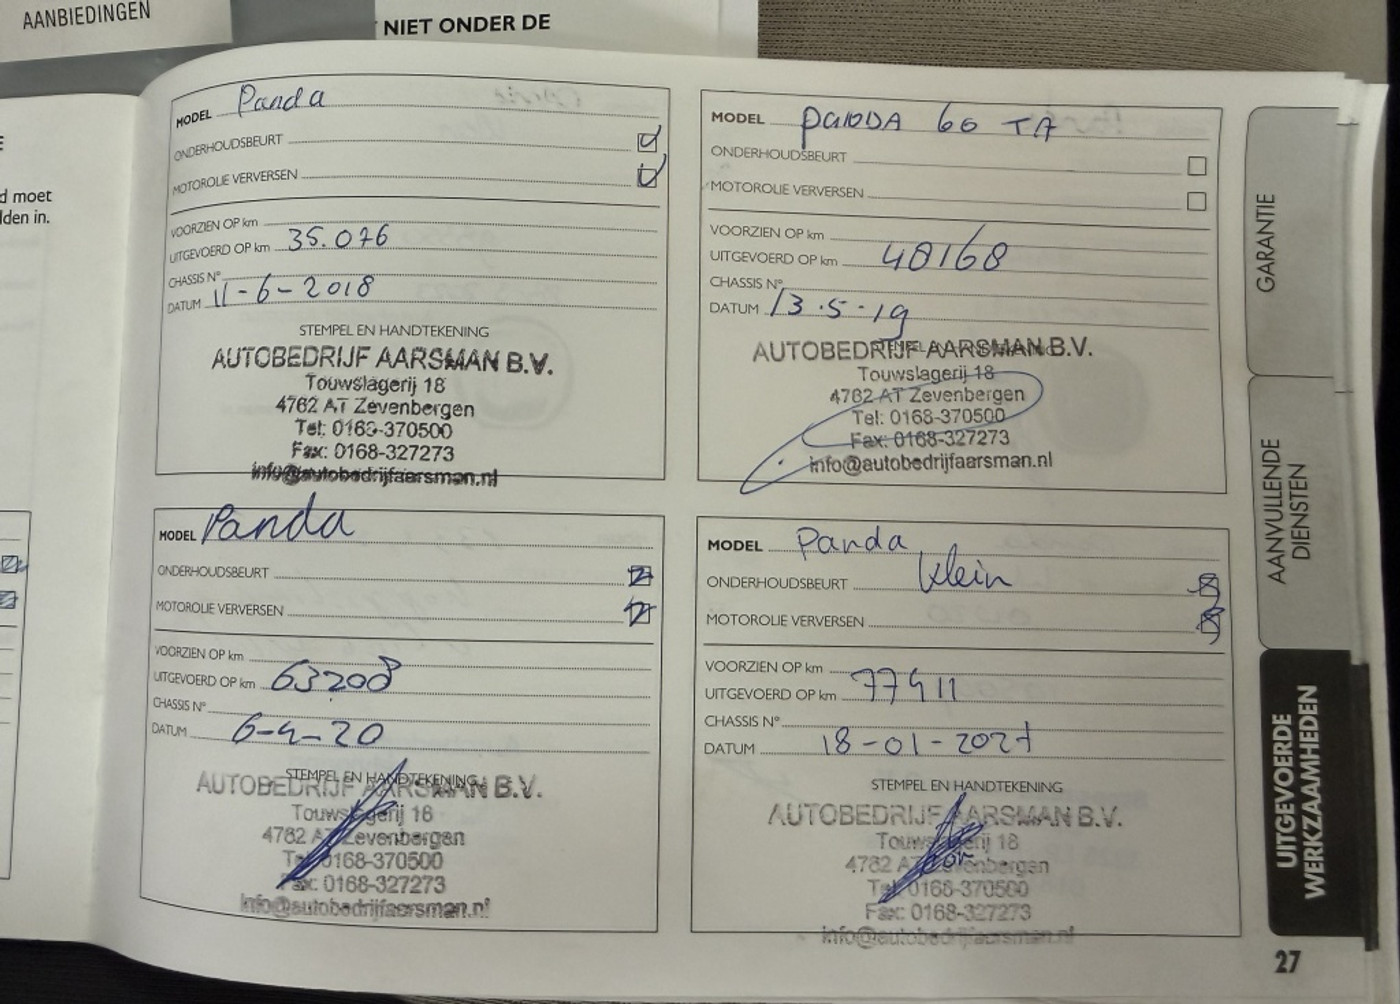 AANBIEDINGEN
NIET ONDER DE
d moet
lden in.
MODEL Panda
ONDERHOUDSBEURT
MOTOROLIE VERVERSEN
VOORZIEN OP km
UITGEVOERD OP km 35.076
CHASSIS N°
DATUM 11-6-2018
STEMPEL EN HANDTEKENING
AUTOBEDRIJF AARSMAN B.V.
Touwslagerij 18
4762 AT Zevenbergen
Tel: 0168-370500
Fax: 0168-327273
info@autobedrijfaarsman.nl
MODEL PANDA 60 TA
ONDERHOUDSBEURT
MOTOROLIE VERVERSEN
VOORZIEN OP km
UITGEVOERD OP km 48168
CHASSIS N°
DATUM 13.5.19
AUTOBEDRIJF AARSMAN B.V.
Touwslagerij 18
4762 AT Zevenbergen
Tel: 0168-370500
Fax: 0168-327273
info@autobedrijfaarsman.nl
MODEL Panda
ONDERHOUDSBEURT
MOTOROLIE VERVERSEN
VOORZIEN OP km
UITGEVOERD OP km 63208
CHASSIS N°
DATUM 6-4-20
STEMPEL EN HANDTEKENING
AUTOBEDRIJF AARSMAN B.V.
Touwslagerij 18
4762 AT Zevenbergen
Tel: 0168-370500
Fax: 0168-327273
info@autobedrijfaarsman.nl
MODEL Panda
ONDERHOUDSBEURT Klein
MOTOROLIE VERVERSEN
VOORZIEN OP km
UITGEVOERD OP km 77411
CHASSIS N°
DATUM 18-01-2021
STEMPEL EN HANDTEKENING
AUTOBEDRIJF AARSMAN B.V.
Touwslagerij 18
4762 AT Zevenbergen
Tel: 0168-370500
Fax: 0168-327273
info@autobedrijfaarsman.nl
GARANTIE
AANVULLENDE
DIENSTEN
UITGEVOERDE
WERKZAAMHEDEN
27